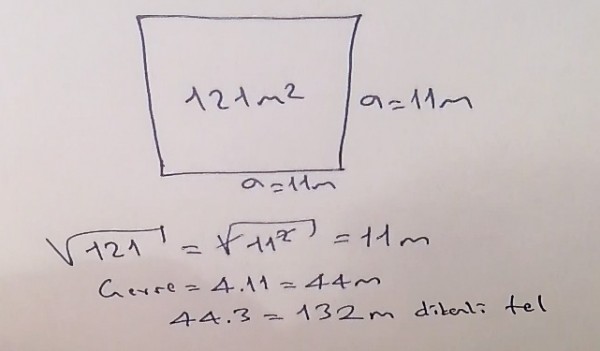 121m²
a=11m
a=11m
√121 = √11² = 11m
Çevre = 4.11 = 44m
44.3 = 132m dikenli tel